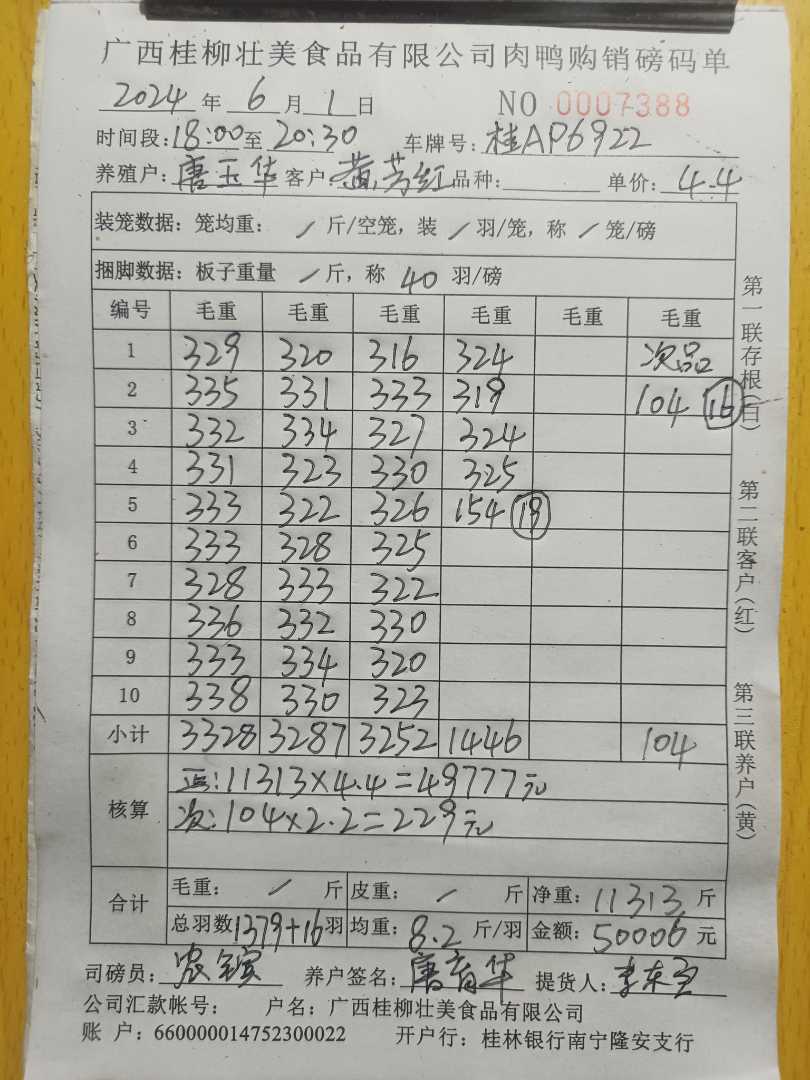 广西桂柳壮美食品有限公司肉鸭购销磅码单
2024 年 6 月 1 日 NO 0007388
时间段:18:00至 20:30 车牌号:桂AP6922
养殖户:唐玉华 客户:黄芳红 品种: 单价:4.4
装笼数据: 笼均重: / 斤/空笼, 装 / 羽/笼, 称 / 笼/磅
捆脚数据: 板子重量 / 斤, 称 40 羽/磅
编号 毛重 毛重 毛重 毛重 毛重 毛重
1 329 320 316 324 次品
2 335 331 333 319 104 16
3 332 334 327 324
4 331 323 330 325
5 333 322 326 154 19
6 333 328 325
7 328 333 322
8 336 332 330
9 333 334 320
10 338 330 323
小计 3328 3287 3252 1446 104
核算 正:11313×4.4=49777元
次:104×2.2=229元
合计 毛重: / 斤 皮重: / 斤 净重:11313斤
总羽数1379+16羽 均重:8.2斤/羽 金额:50006元
司磅员: 养户签名:唐育华 提货人:李东
公司汇款帐号: 户名:广西桂柳壮美食品有限公司
账 户:660000014752300022 开户行:桂林银行南宁隆安支行
第一联存根(白)
第二联客户(红)
第三联养户(黄)